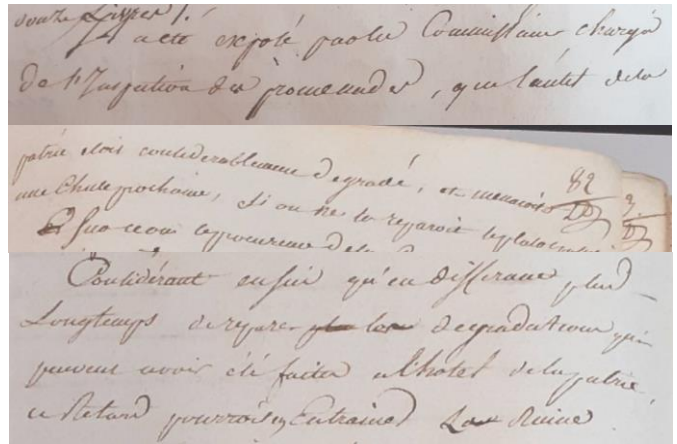 onze Livres /.
Il a été exposé par les Commissaires chargés
de l'Inspection des promenades, que l'autel de la
patrie étoit considerablement degradé, et menacoit
82
une chute prochaine, si on ne le reparoit
Sur ce oui le procureur de la
Considérant enfin qu'en differant plus
Longtemps de reparer les degradations qui
peuvent avoir été faites a l'hotel de la patrie,
ce Retard pourroit en Entrainer La Ruine